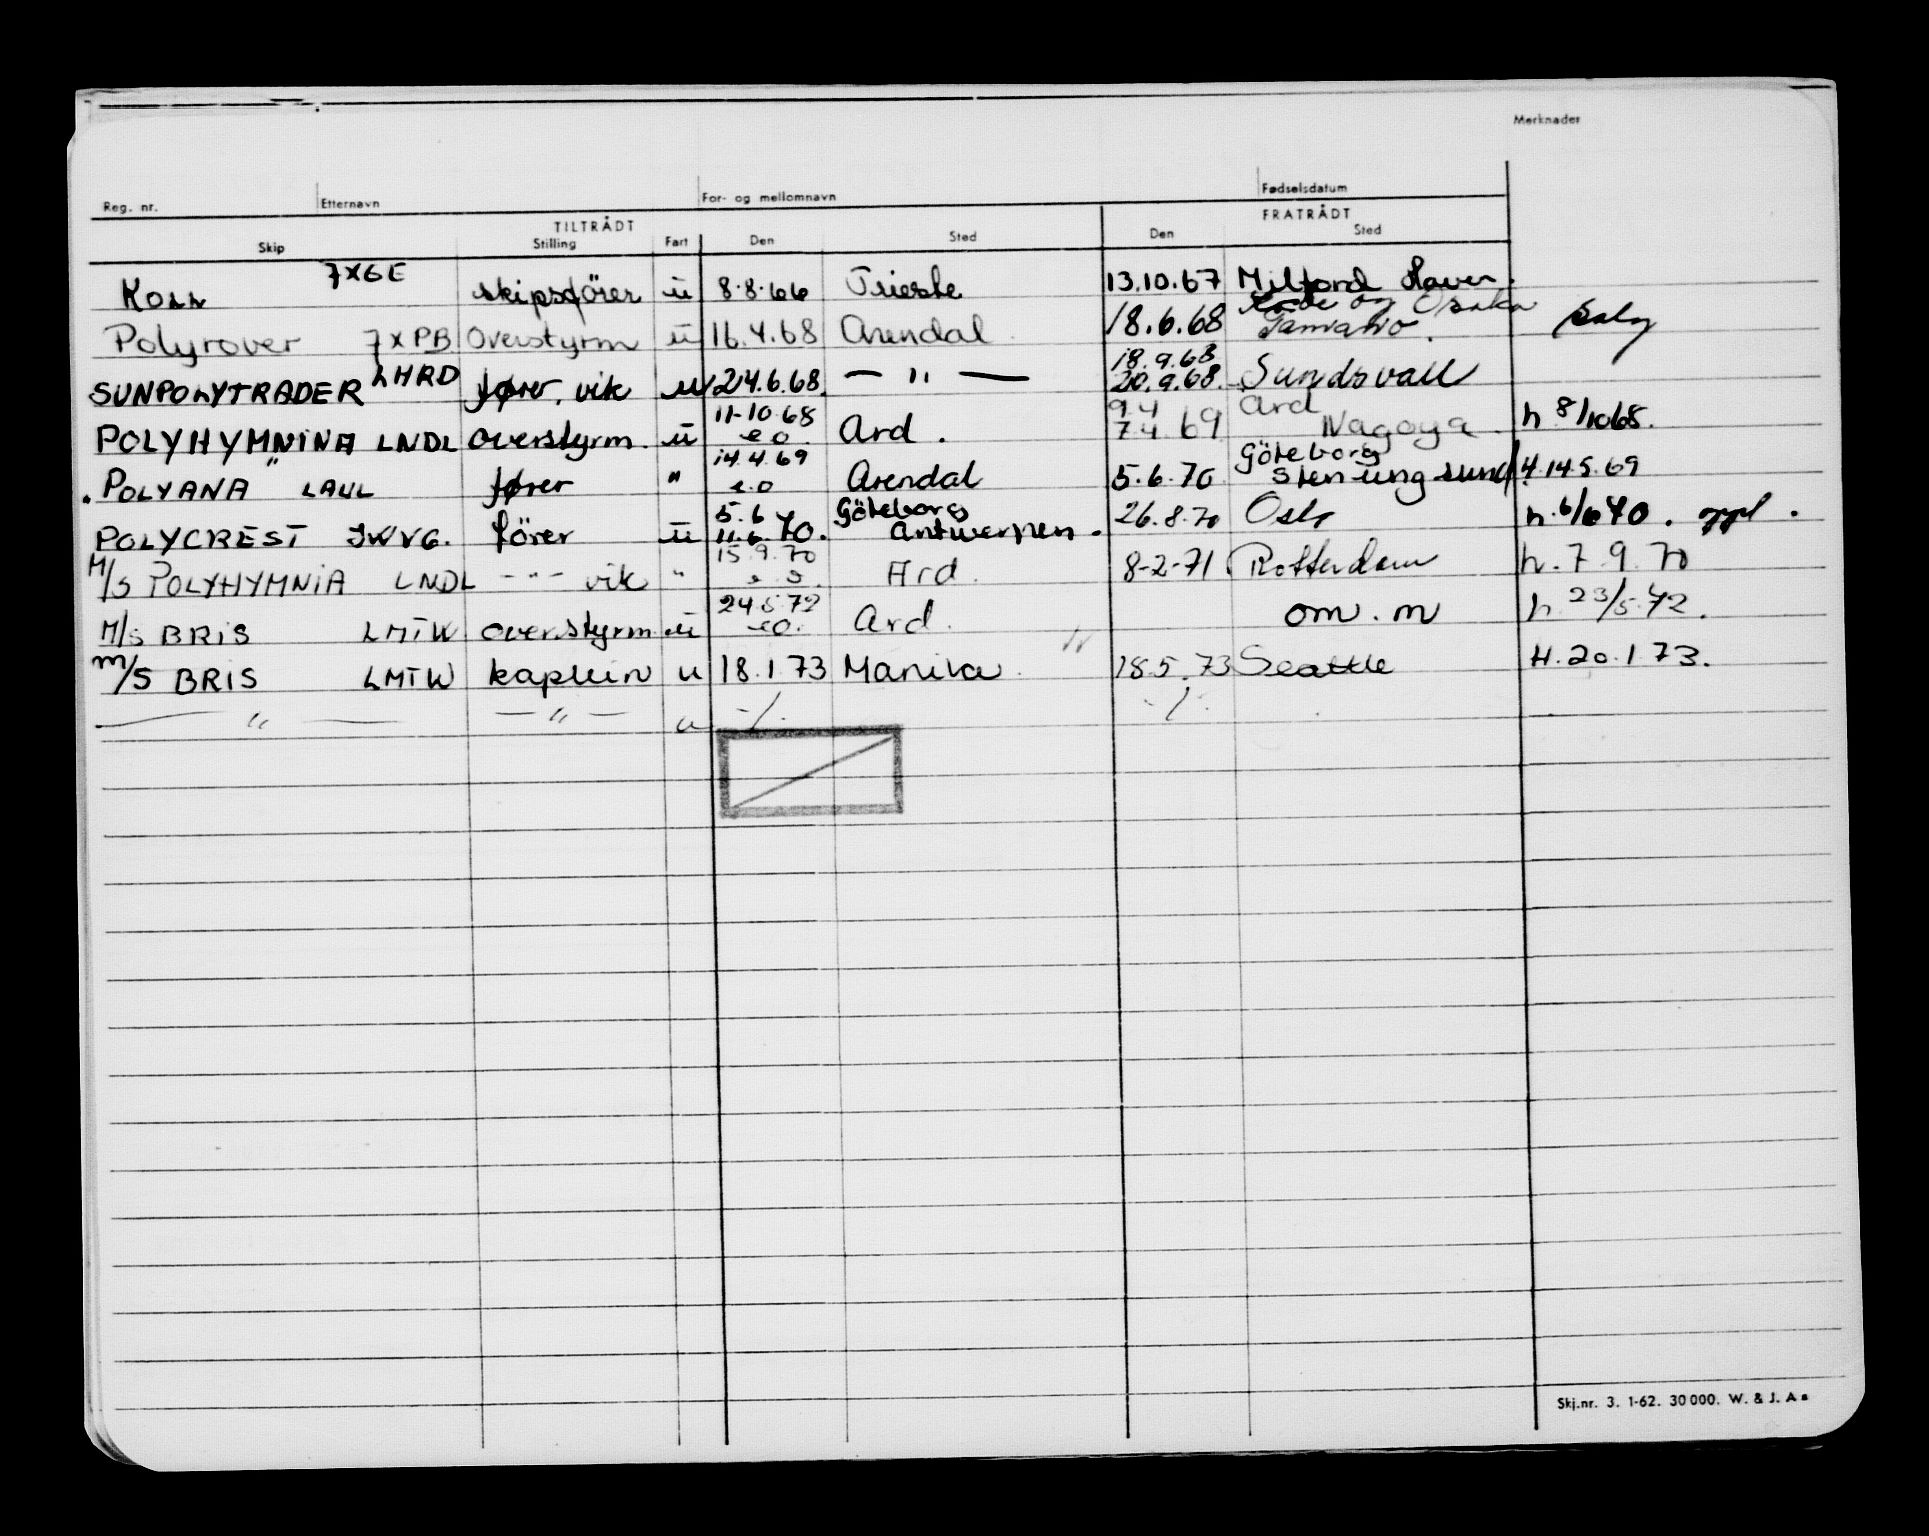 Merknader
Reg. nr. Etternavn For- og mellomnavn Fødselsdatum
TILTRÅDT FRATRÅDT
Skip Stilling Fart Den Sted Den Sted
KOLL 7XGE skipsförer u 8.8.66 Trieste 13.10.67 Milford Haven.
Kobe og Osaka
Polyrover 7XPB Overstyrm u 16.4.68 Arendal 18.6.68 Salg
18.9.68
SUNPOLYTRADER LHRD fører, vik u 24.6.68. — " — 20.9.68. Sundsvall
11-10.68 9.4 Ard
POLYHYMNINA LNDL overstyrm. u e.o. Ard. 7.4.69 Nagoya. h. 8/10 68.
14.4.69 Göteborg
. POLYANA " LAUL fører " e.o Arendal 5.6.70 Stenungsund 4.14.5.69
5.6 Göteborg
POLYCREST JWVG. förer u 11.6.70. Antwerpen. 26.8.70 Oslo h. 6/6 70. oppl.
15.9.70
M/S POLYHYMNIA LNDL -"- vik " e.o. Ard. 8-2-71. Rotterdam h. 7.9.70
24.5.72
M/S BRIS LMTW overstyrm. u e.o. Ard. om. m h. 23/5.72.
M/S BRIS LMTW kaptein u 18.1.73 Manila. 18.5.73 Seattle H. 20.1.73.
— " — — " — u -/. -/.
Skj.nr. 3. 1-62. 30 000. W. & J. A s